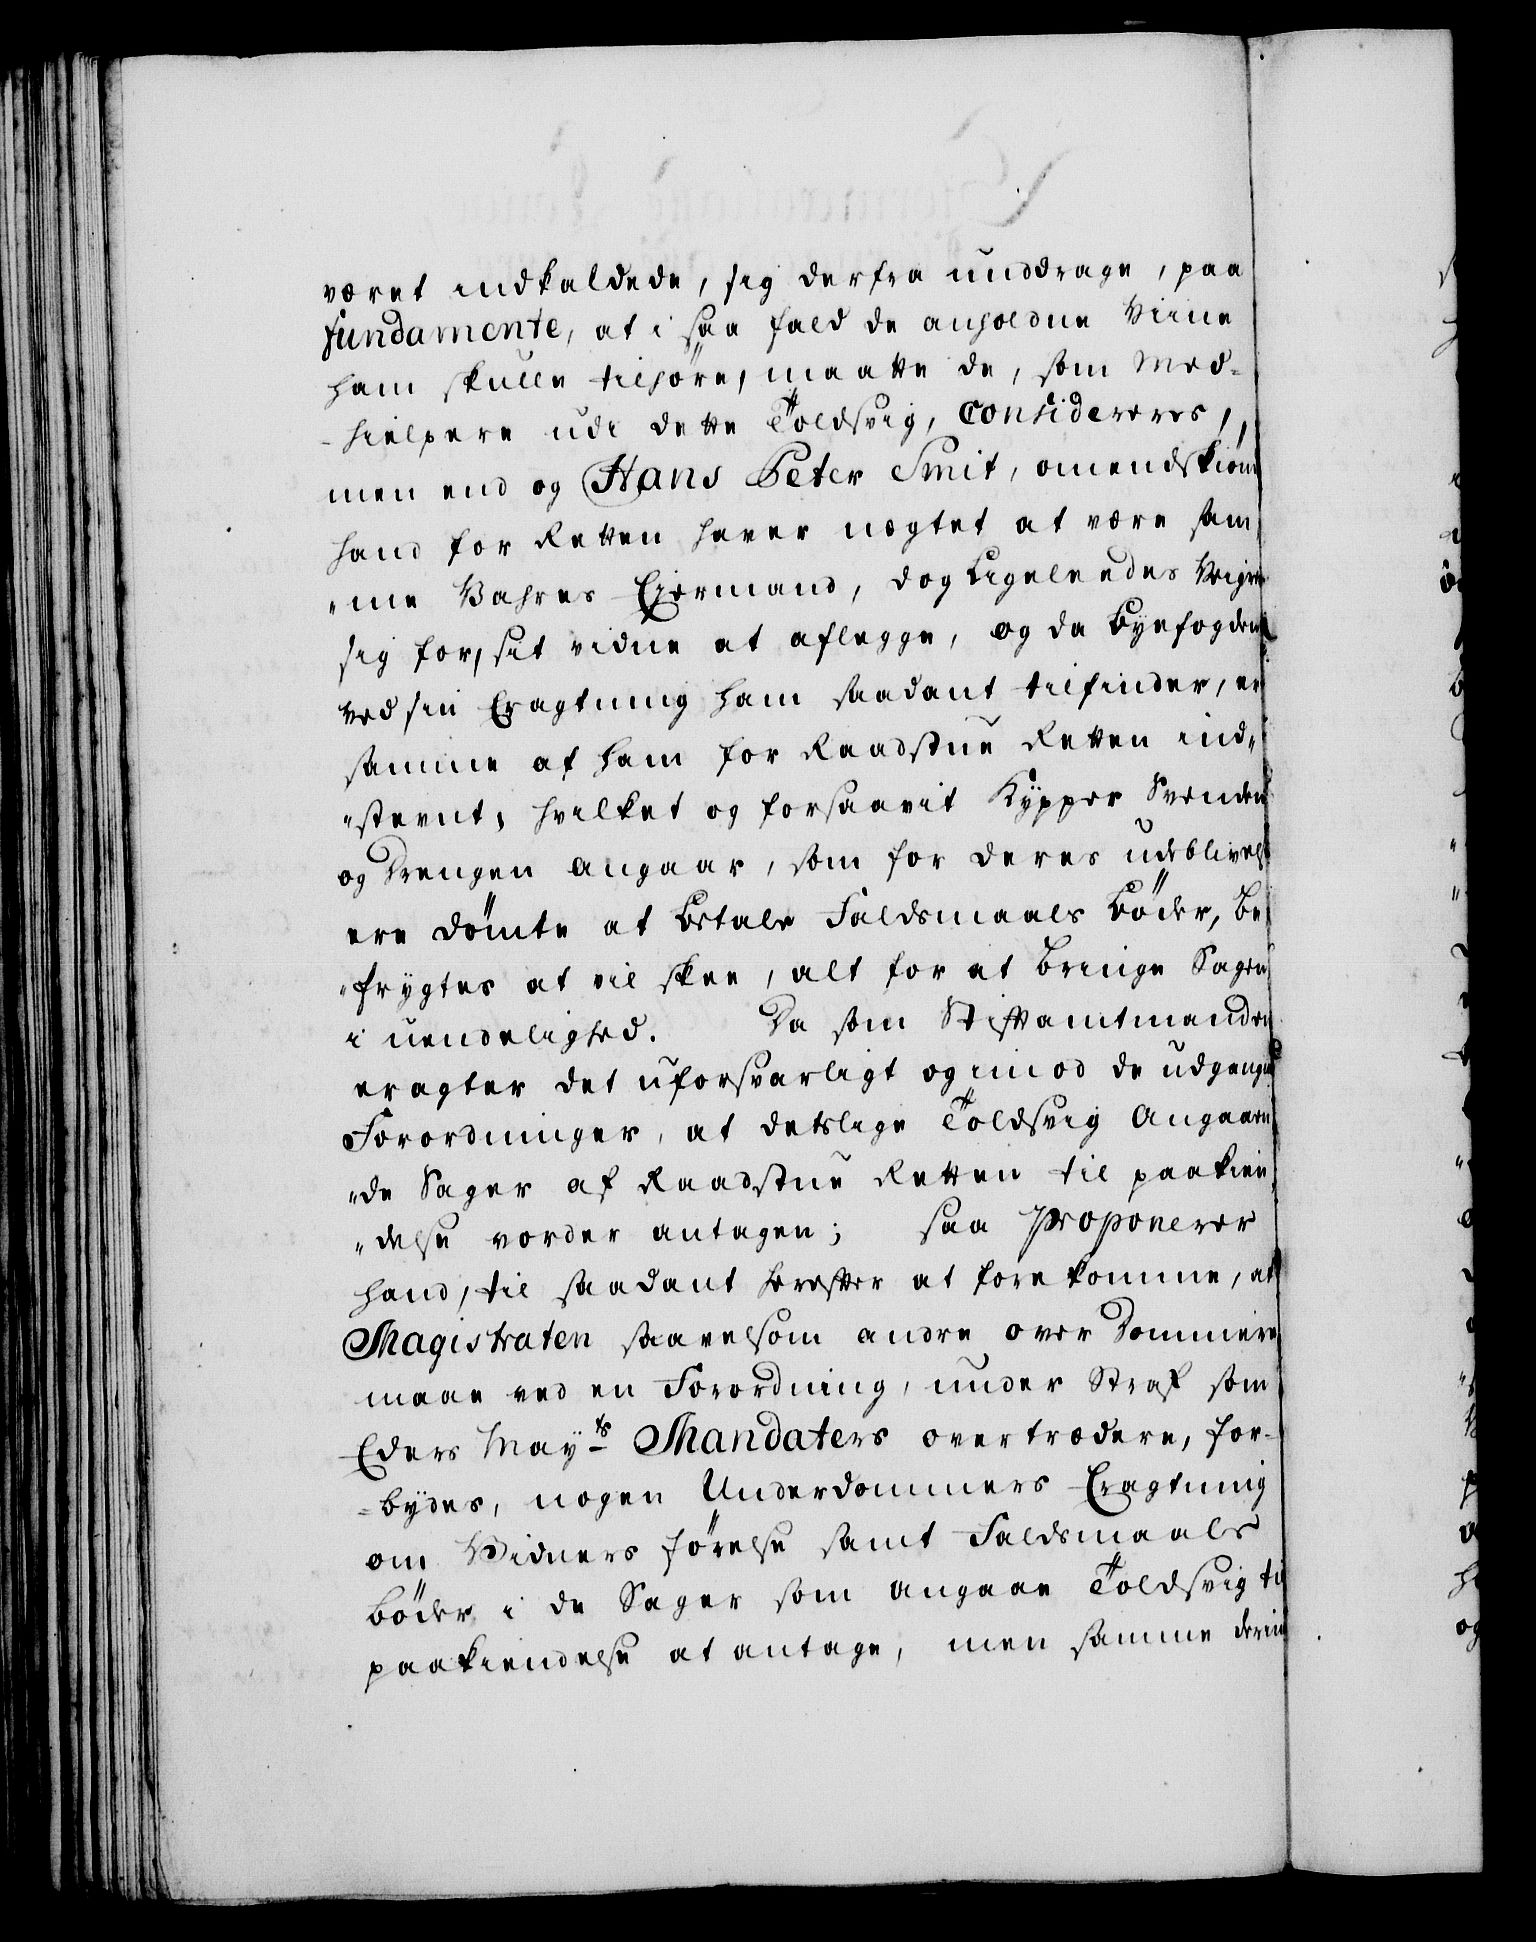 været indkaldede, sig derfra unddrage, paa
fundamente, at i saa fald de anholdne Viine
ham skulle tilhøre, maatte de, som Med-
-hielpere udi dette Toldsvig, Considereres,
men end og Hans Peter Smit, omendskiønt
hand for Retten haver nægtet at være sam
"me Vahres Ejermand, dog ligeleedes Veigrer
sig for, sit vidne at aflegge, og da Byefogden
ved sin Eragtning ham saadant tilfinder, er
samme af ham for Raadstue Retten ind"
"stevnt, hvilket og forsaavit Kypper Svenden
og Drengen angaar, som for deres udeblivelse
ere dömte at betale Faldsmaals Böder, be
"frygtes at vil skee, alt for at bringe Sagen
i uendelighed. Da som Stiftamtmanden
eragter det uforsvarligt og imod de udgangne
Forordninger, at detslige Toldsvig Angaaen
"de Sager af Raadstue Retten til paakien
"delse vorder antagen; saa Proponerer
hand, til saadant herefter at forekomme, at
Magistraten saavelsom andre over Dommere
maae ved en Forordning, under Straf som
Eders Mayts Mandaters overtrædere, for-
-bydes, nogen Underdommers Eragtning
om Vidners førelse samt Faldsmaals
böder i de Sager som angaae Toldsvig til
paakiendelse at antage, men samme derimod